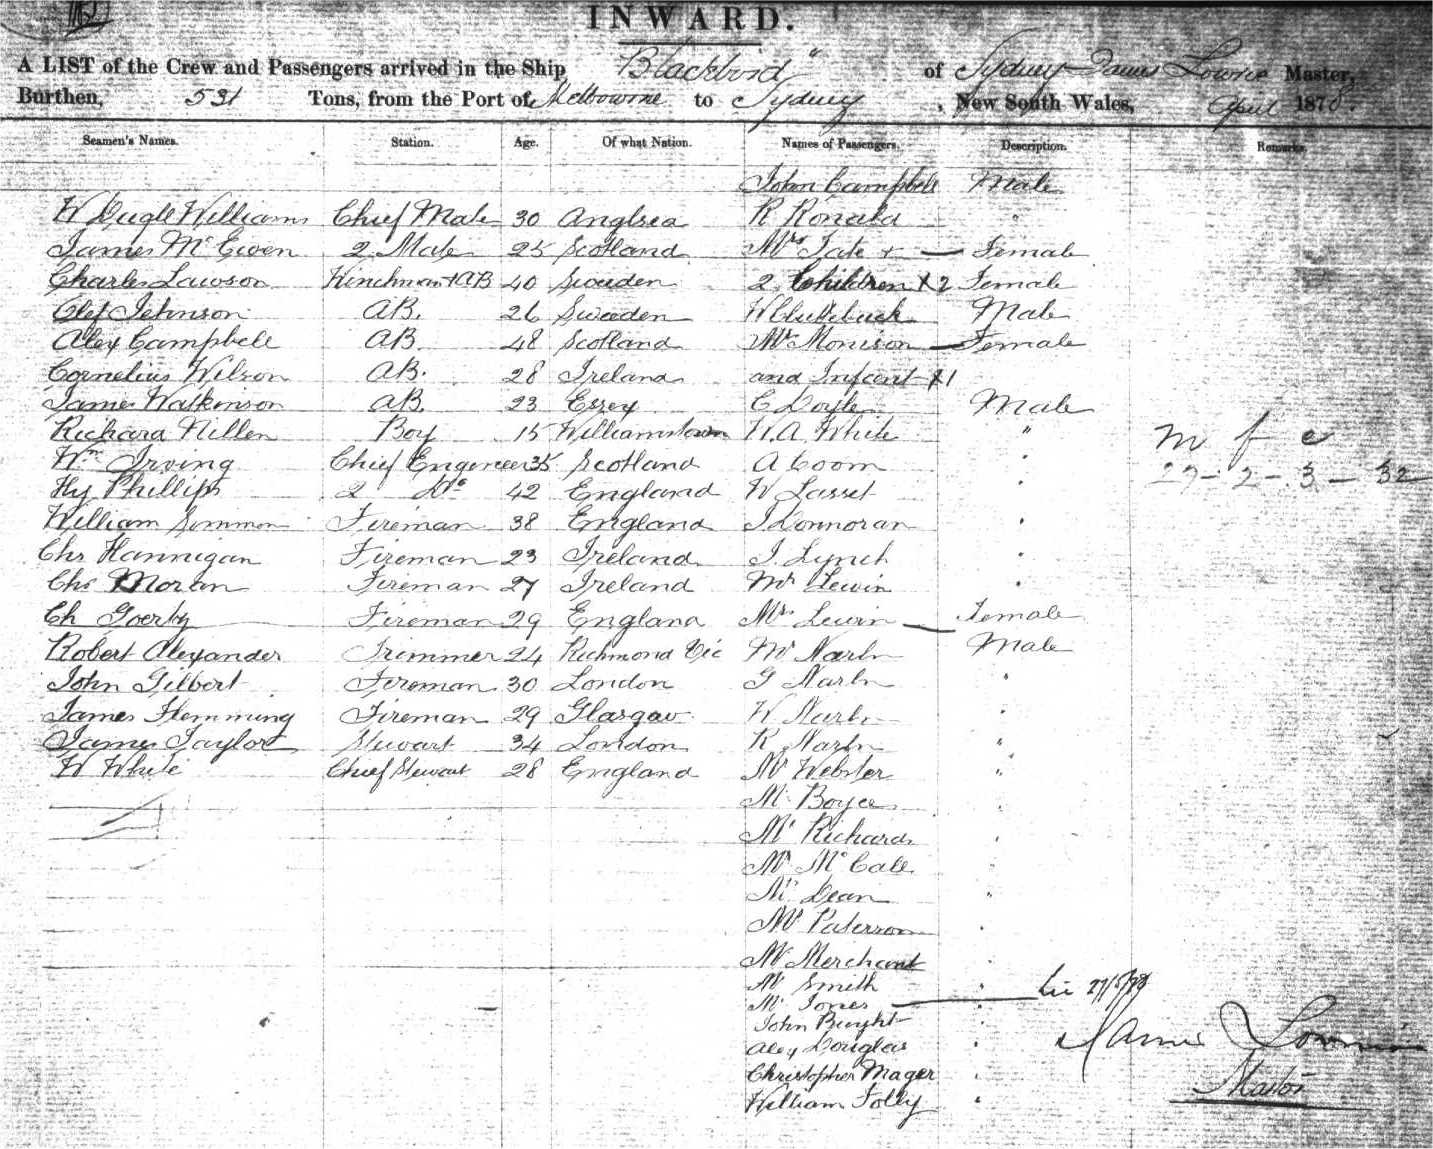 INWARD.
A LIST of the Crew and Passengers arrived in the Ship "Blackbird" of Sydney James Lowrie Master,
Burthen, 531 Tons, from the Port of Melbourne to Sydney, New South Wales, April 1878
Seamen's Names. Station. Age. Of what Nation. Names of Passengers. Description. Remarks.
John Campbell Male
W Williams Chief Mate 30 Anglsea R Ronald "
James McEwen 2 Mate 25 Scotland Mrs Tate + — Female
Charles Lawson Winchman + AB 40 Sweden 2 Children X 2 Female
Olef Johnson AB. 26 Sweeden W Clutterbuck Male
Alex Campbell AB. 48 Scotland Mrs Morrison — Female
Cornelius Wilson AB. 28 Ireland and Infant X1
James Watkinson AB. 23 Essex C Doyle Male
Richard Nillen Boy 15 Williamstown W. A White " m f c
Wm Irving Chief Engineer 35 Scotland A Coom " 27 - 2 - 3 - 32
Hy Phillips 2 Do 42 England W Lasset "
William Simmon Fireman 38 England J Donnoran "
Chs Hannigan Fireman 23 Ireland J. Lynch "
Chs Moran Fireman 27 Ireland Mr Lewin "
Ch Goerby Fireman 29 England Mrs Lewin — Female
Robert Alexander Trimmer 24 Richmond Vic Mr Male
John Gilbert Fireman 30 London G "
James Flemming Fireman 29 Glasgow W "
James Taylor Stewart 34 London R "
W White Chief Stewart 28 England Mr Webster "
Mr Boyce "
Mr Richards "
Mr McCall "
Mr Dean "
Mr Paterson "
Mr Merchant "
Mr Smith "
Mr Jones — "
John Bright "
Alex Douglas "
James Lowrie
Christopher Mager "
Master
William Jolly "